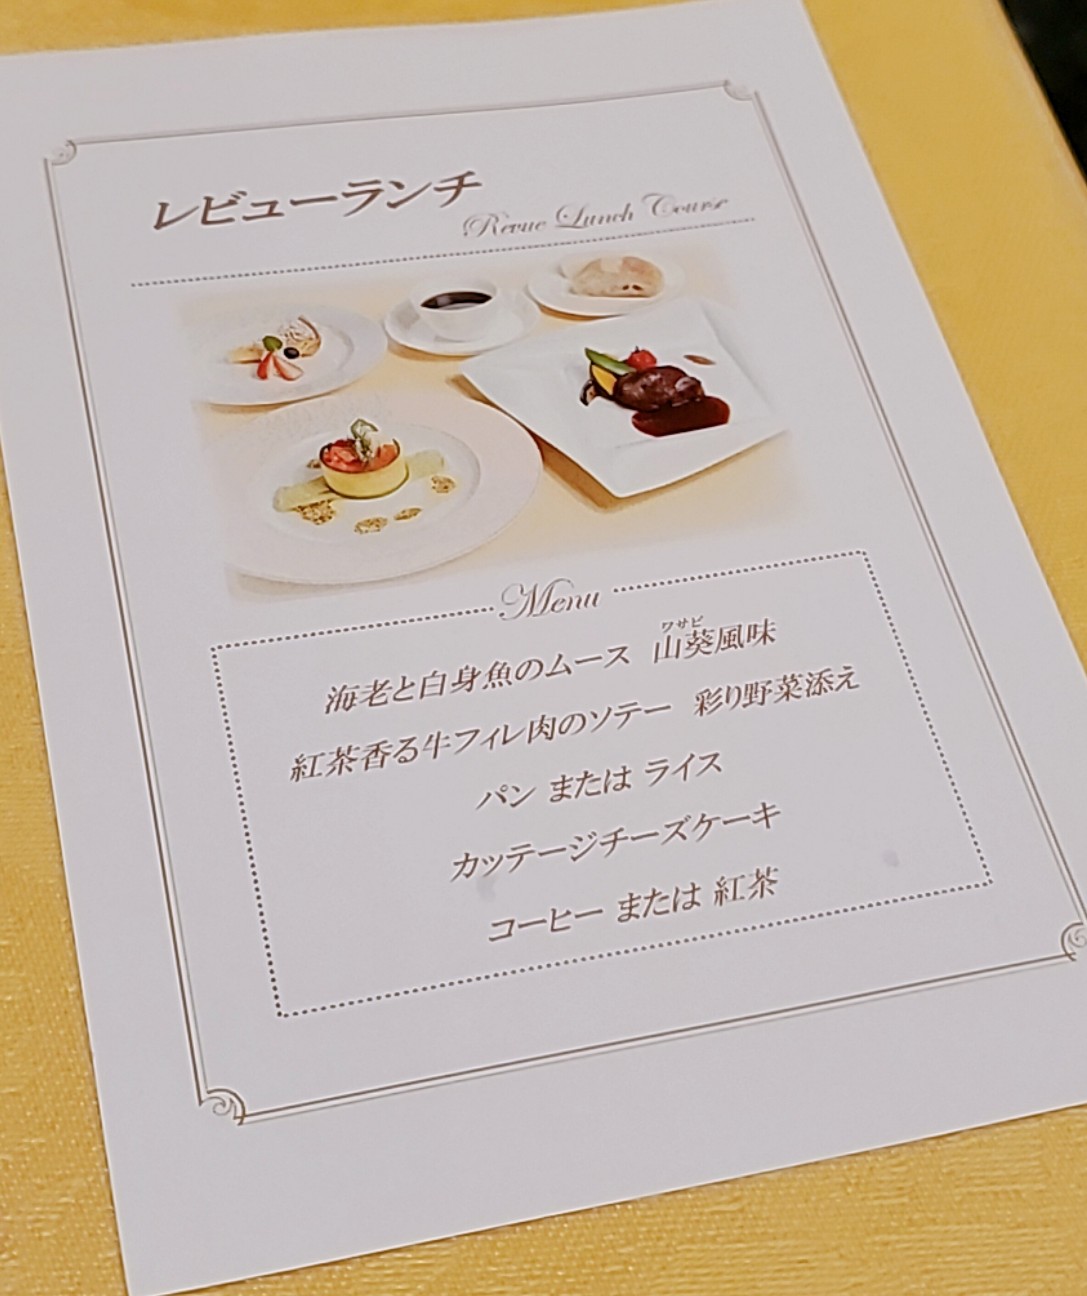 レビューランチ
Revue Lunch Course
Menu
ワサビ
海老と白身魚のムース 山葵風味
紅茶香る牛フィレ肉のソテー 彩り野菜添え
パン または ライス
カッテージチーズケーキ
コーヒー または 紅茶